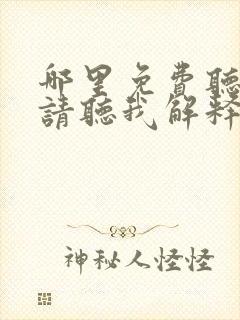 哪里免費聽
請聽我解釋
神秘人怪怪